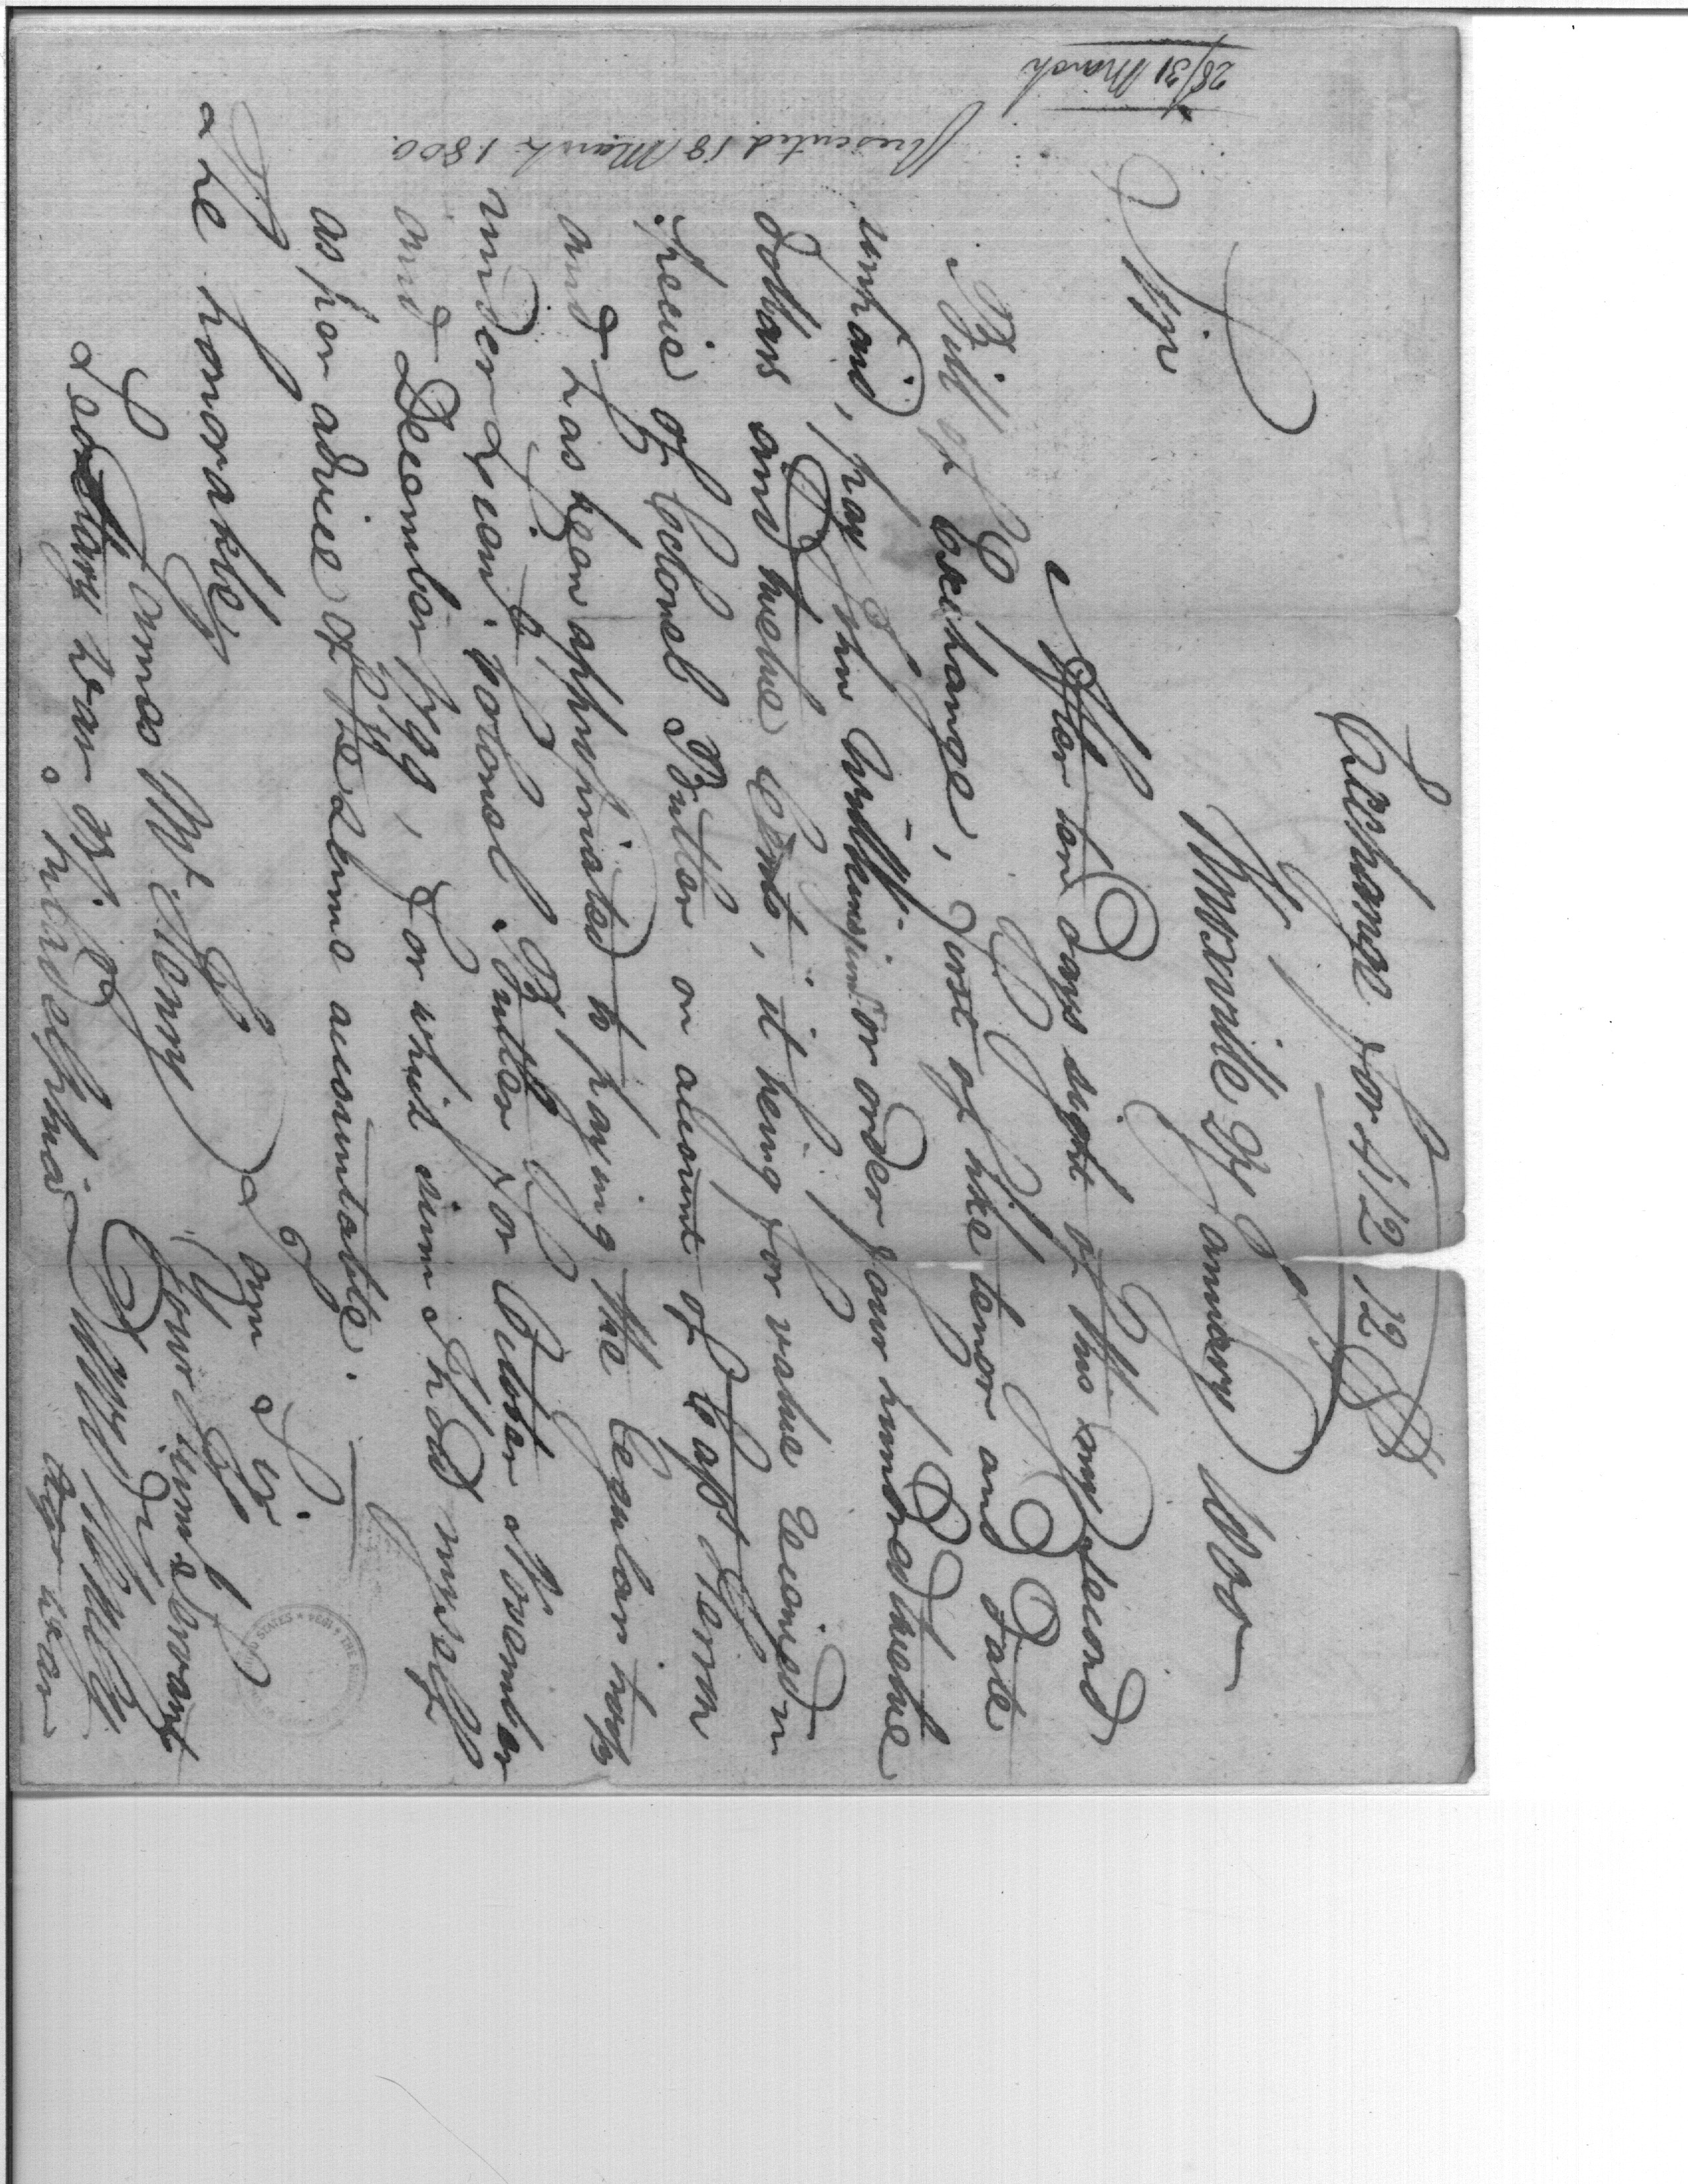 Exchange for 412 12 D
Knoxville 24 January 1800
Sir
After ten Days sight of this my second
Bill of Exchange, first of like tenor and Date
unpaid, pay John Wilkinson or order four hundred twelve
dollars and twelve Cents, it being for value received in
specie of Colonel Butler on account of Capt
and has been appropriated to paying the Regular troops
under Lieut. Colonel Butler for October November
and December 1799, for which sum I hold myself
as per advice of the same accountable.
I am Sir
The honorable
Your humb servant
James McHenry
David Henley
Secretary War Of. Philadelphia
Agt War
Presented 18 March 1800.
28/31 March